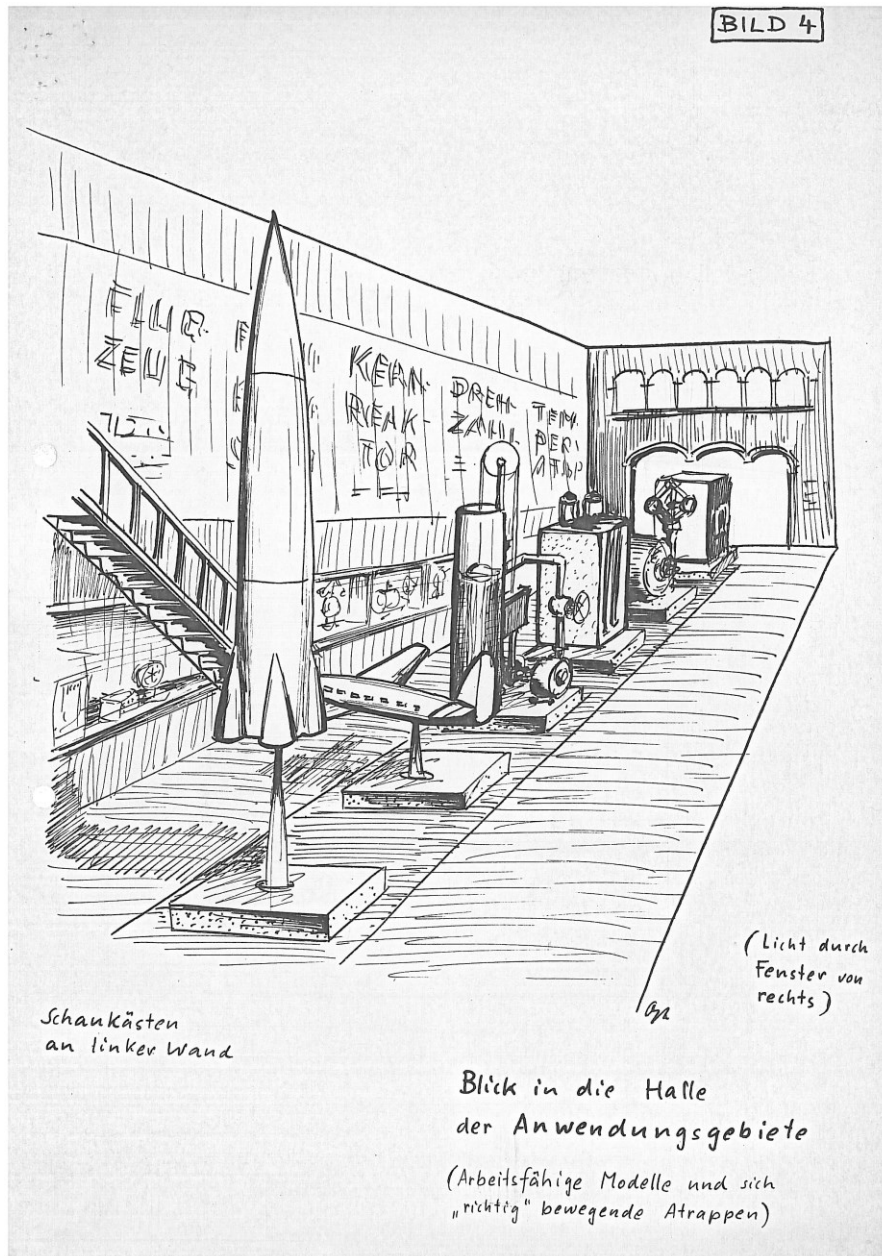 BILD 4
FLUG-
ZEUG
KERN-
REAK-
TOR
DREH-
ZAHL
TEM-
PER-
ATUR
(Licht durch
Fenster von
rechts)
Schaukästen
an linker Wand
Blick in die Halle
der Anwendungsgebiete
(Arbeitsfähige Modelle und sich
„richtig“ bewegende Atrappen)